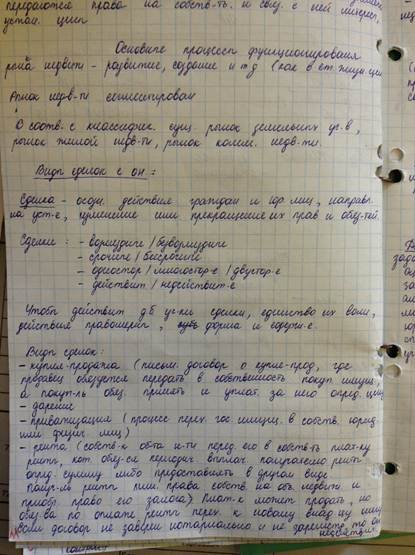 передаются права на собств-ть. и связ. с ней интерес,
устан. цин
Основные процессы функционирования
рынка недвиж-ти - развитие, создание и т.д (как в ст. жизн. ции
Рынок нед-в-ти сегментирован
В соотв. с классифик. сущ. рынок земельных уч-в,
рынок жилой недв-ти, рынок комм. недв-ти.
Виды сделок с он:
Сделка - осозн. действия граждан и юр лиц, направл.
на уст-е, изменение или прекращение их прав и обяз-тей.
Сделки: - возмездные / безвозмездные
- срочные / бессрочные
- одностор / многостор-е / двустор-е
- действит / недействит-е
Чтобы действит д.б уч-ки сделки, единство их воли,
действия правомерны, форма и содерж-е.
Виды сделок:
- купля-продажа (письм. договор о купле-прод, где
продавец обязуется передать в собственность покуп. имущ,
а покуп-ль обяз. принять и уплат. за него опред. цену
- дарение
- приватизация (процесс перех. гос. имущ. в собств. юрид
или физич лиц)
- рента (собств-к об-та н-ти перед. его в собств-ть плат-ку
ренты, кот. обяз-ся периодич. выплач. получателю ренты
опред. сумму либо предоставлять в другом виде
Получ-ль ренты лиш. права собств. на об. недвиж и
приобр. право его залога) Плат-к может продать, но
обяз-ва по оплате ренты перех. к новому влад-цу имущ
Если договор не заверен нотариально и не зарегистр, то он
недействит.